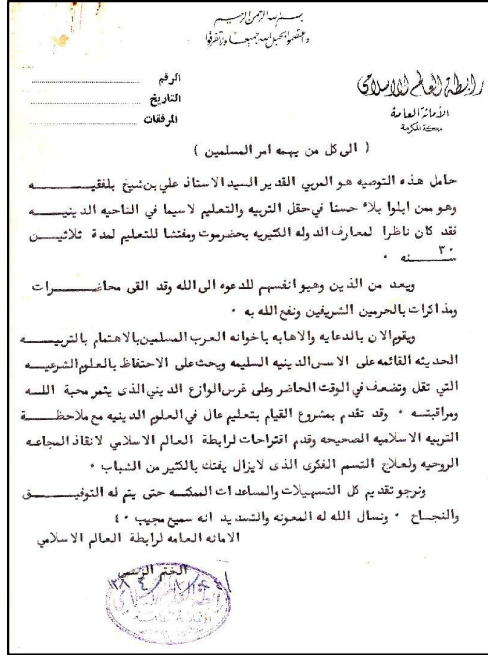 بسم الله الرحمن الرحيم
واعتصموا بحبل الله جميعا ولا تفرقوا
رابطة العالم الاسلامي
الأمانة العامة
مكة المكرمة
الرقم
التاريخ
المرفقات
( الى كل من يهمه امر المسلمين )
حامل هذه التوصيه هو المربي القدير السيد الاستاذ علي بن شيخ بلفقيــه
وهو ممن ابلوا بلاء حسنا في حقل التربيه والتعليم لاسيما في الناحيه الدينيــه
فقد كان ناظرا لمعارف الدوله الكثيريه بحضرموت ومفتشا للتعليم لمدة ثلاثيــن
٣٠
سـنه .
ويعد من الذين وهبو انفسهم للدعوه الى الله وقد القى محاضــرات
ومذاكرات بالحرمين الشريفين ونفع الله به .
ويقوم الان بالدعايه والاهابه باخوانه العرب المسلمين بالاهتمام بالتربيــه
الحديثه القائمه على الاسس الدينيه السليمه ويحث على الاحتفاظ بالعلوم الشرعيــه
التي تقل وتضعف في الوقت الحاضر وعلى غرس الوازع الديني الذى يثمر محبة اللــه
ومراقبتــه . وقد تقدم بمشروع القيام بتعليم عال في العلوم الدينيه مع ملاحظــة
التربيه الاسلاميه الصحيحه وقدم اقتراحات لرابطة العالم الاسلامي لانقاذ المجاعه
الروحيه ولعلاج التسمم الفكرى الذى لايزال يفتك بالكثير من الشباب .
ونرجو تقديم كل التسهيلات والمساعدات الممكنــه حتى يتم له التوفيــق
والنجــاح . ونسال الله له المعونه والتسديد انه سميع مجيب . ٤
الامانه العامه لرابطة العالم الاسلامي
الختم الرسمي